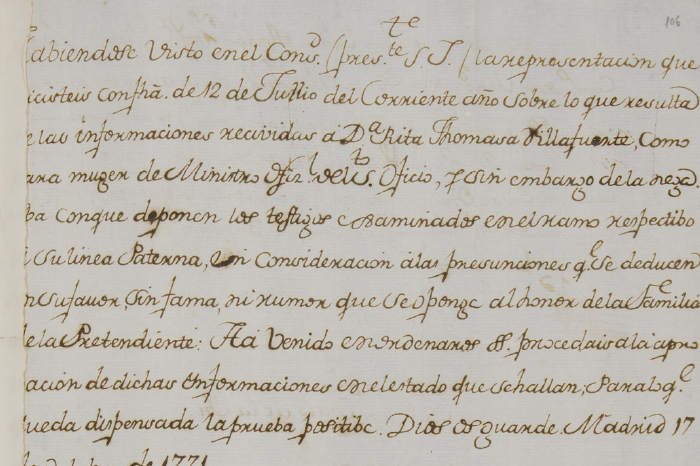 106
abiendose Visto en el Cons.º (pres.te S. I.) la representacion que
icisteis con fha. de 12 de Jullio del Corriente año sobre lo que resulta
e las informaciones recividas a D.ª Rita Thomasa Villafuerte, como
ara muger de Ministro Ofiz.l del S.to Oficio, y sin embargo de la neg.ª
ba con que deponen los testigos examinados en el ramo respectibo
su linea Paterna, en Consideracion a las presunciones q.e se deducen
n su favor, sin fama, ni rumor que se oponga al honor de la Familia
e la Pretendiente: Ha Venido en ordenaros S. procedais a la apro
acion de dichas informaciones en el estado que se hallan, para lo q.e
ueda dispensada la prueba positiba. Dios os guarde. Madrid 17
de 1771